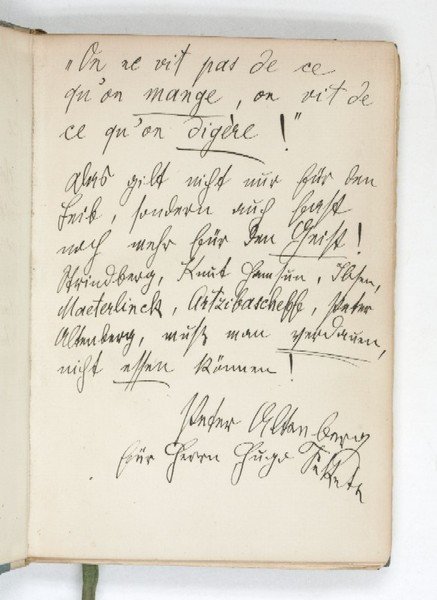 „On ne vit pas de ce
qu'on mange, on vit de
ce qu'on digère!"
Das gilt nicht nur für den
Leib, sondern auch fast
noch mehr für den Geist!
Strindberg, Knut Hamsun, Ibsen,
Maeterlinck, Artzibascheff, Peter
Altenberg, muß man verdauen,
nicht essen können!
Peter Altenberg
für Herrn Hugo